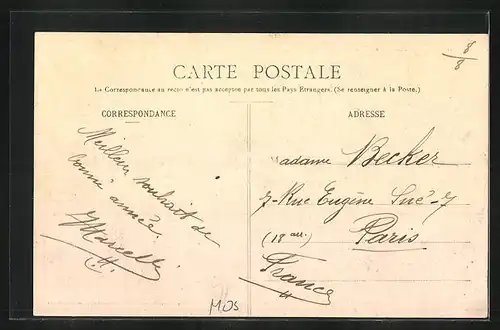 8/8
CARTE POSTALE
La Correspondance au recto n'est pas acceptée par tous les Pays Étrangers. (Se renseigner à la Poste.)
CORRESPONDANCE
Meilleur souhait de
bonne année.
Marcelle
M.OS
ADRESSE
adame Becker
7-Rue Eugène Suë-7
(18 arr.) Paris
France